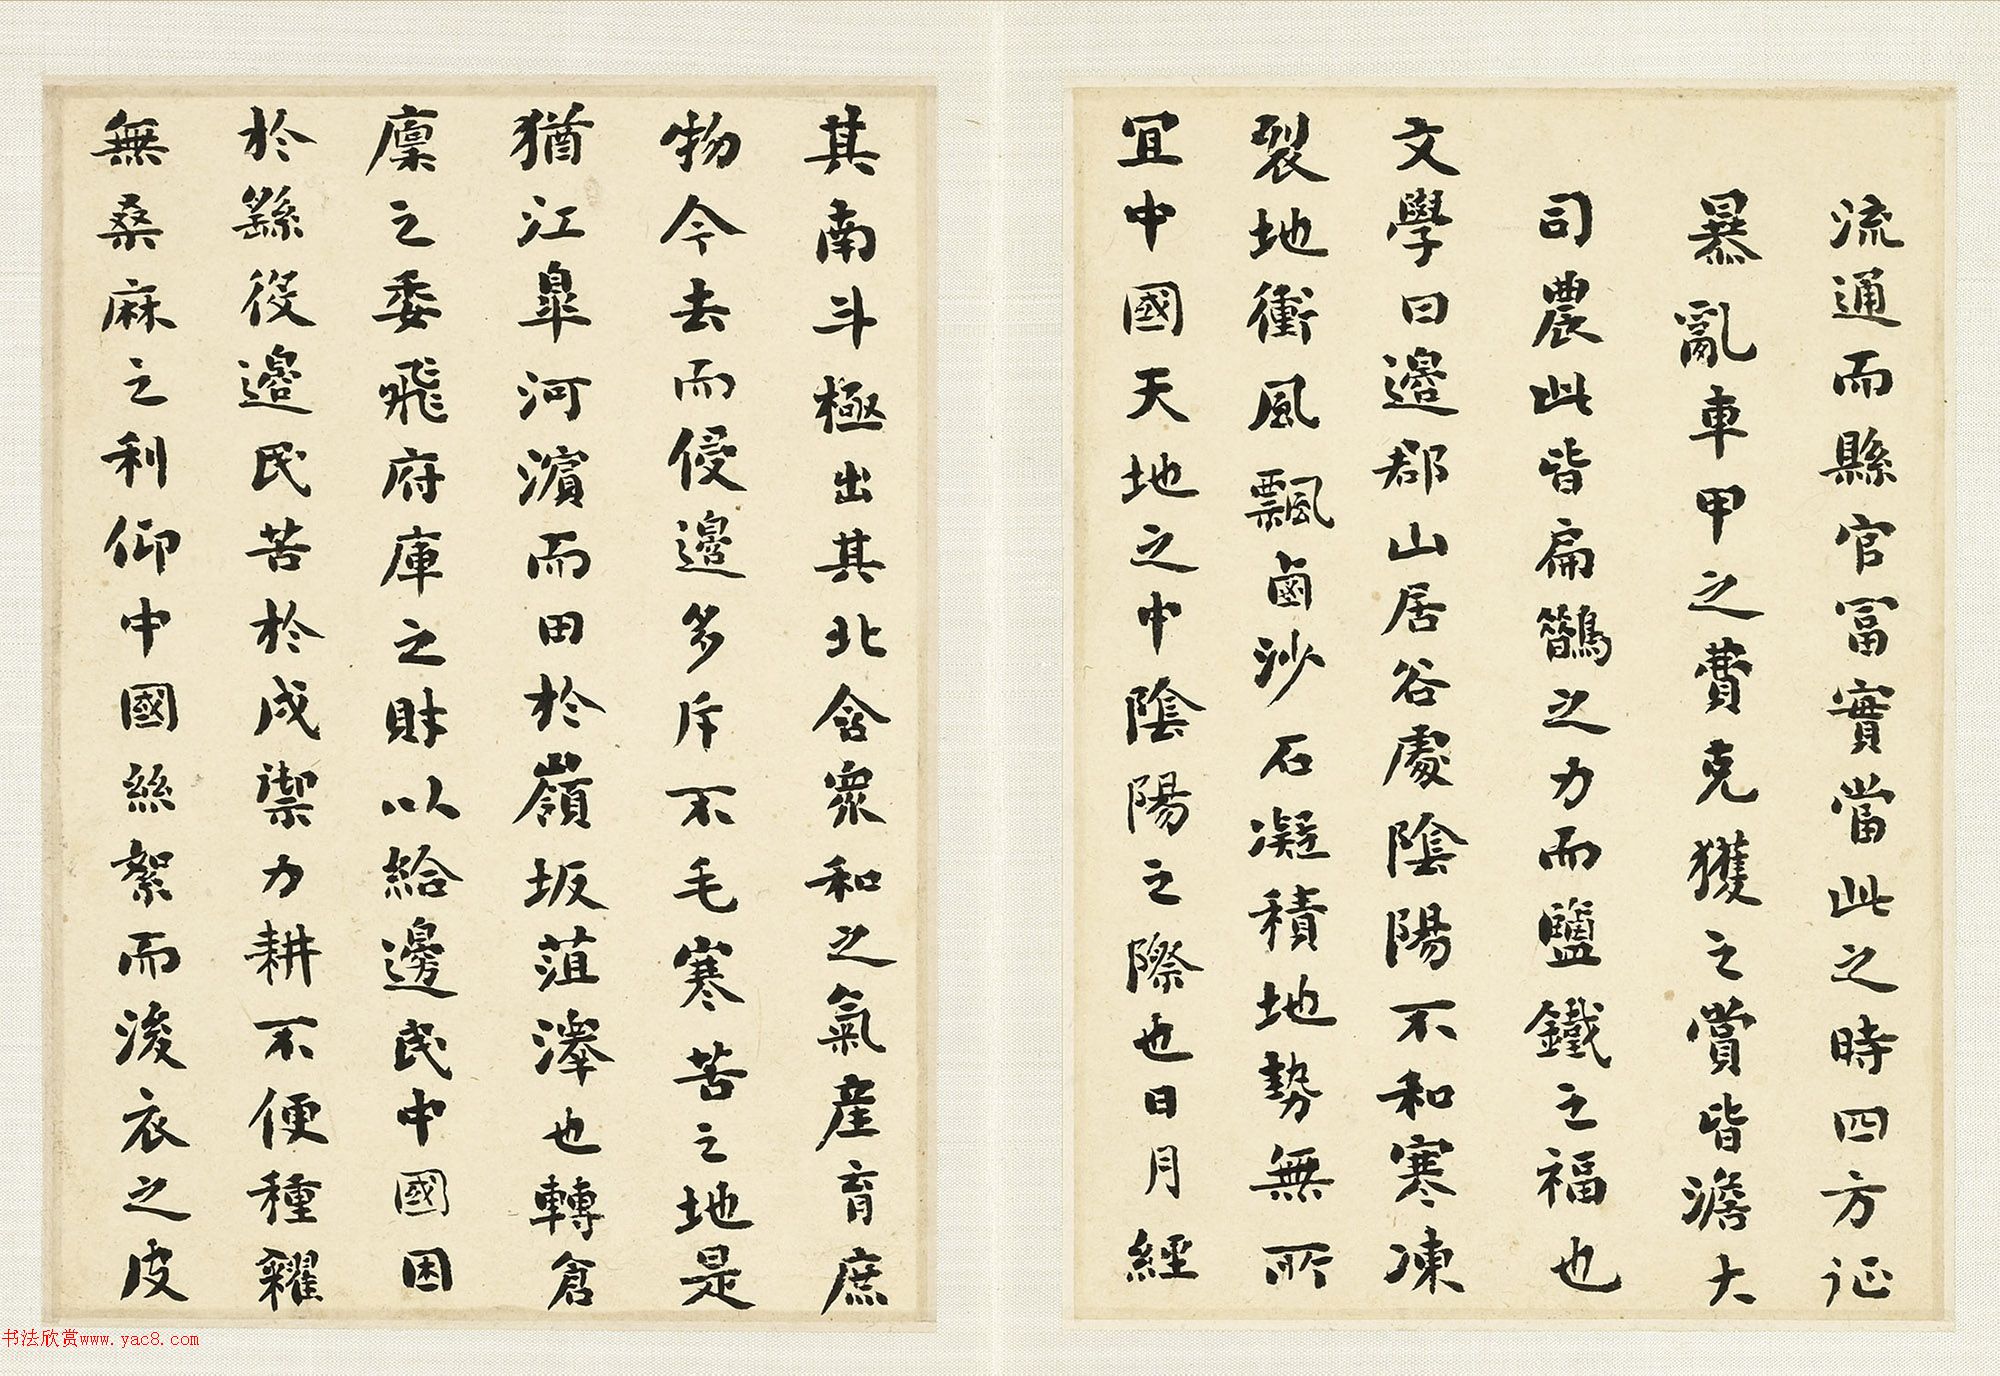 流通而縣官冨實當此之時四方征
暴亂車甲之費克獲之賞皆澹大
司農此皆扁鵲之力而鹽鐵之福也
文學曰邊郡山居谷處陰陽不和寒凍
裂地衝風飄鹵沙石凝積地勢無所
宜中國天地之中陰陽之際也日月經
其南斗極出其北含衆和之氣產育庶
物今去而侵邊多斥不毛寒苦之地是
猶江皐河濵而田於嶺坂菹澤也轉倉
廩之委飛府庫之財以給邊民中國困
於繇役邊民苦於戍禦力耕不便種糴
無桑麻之利仰中國絲絮而後衣之皮
书法欣赏www.yac8.com